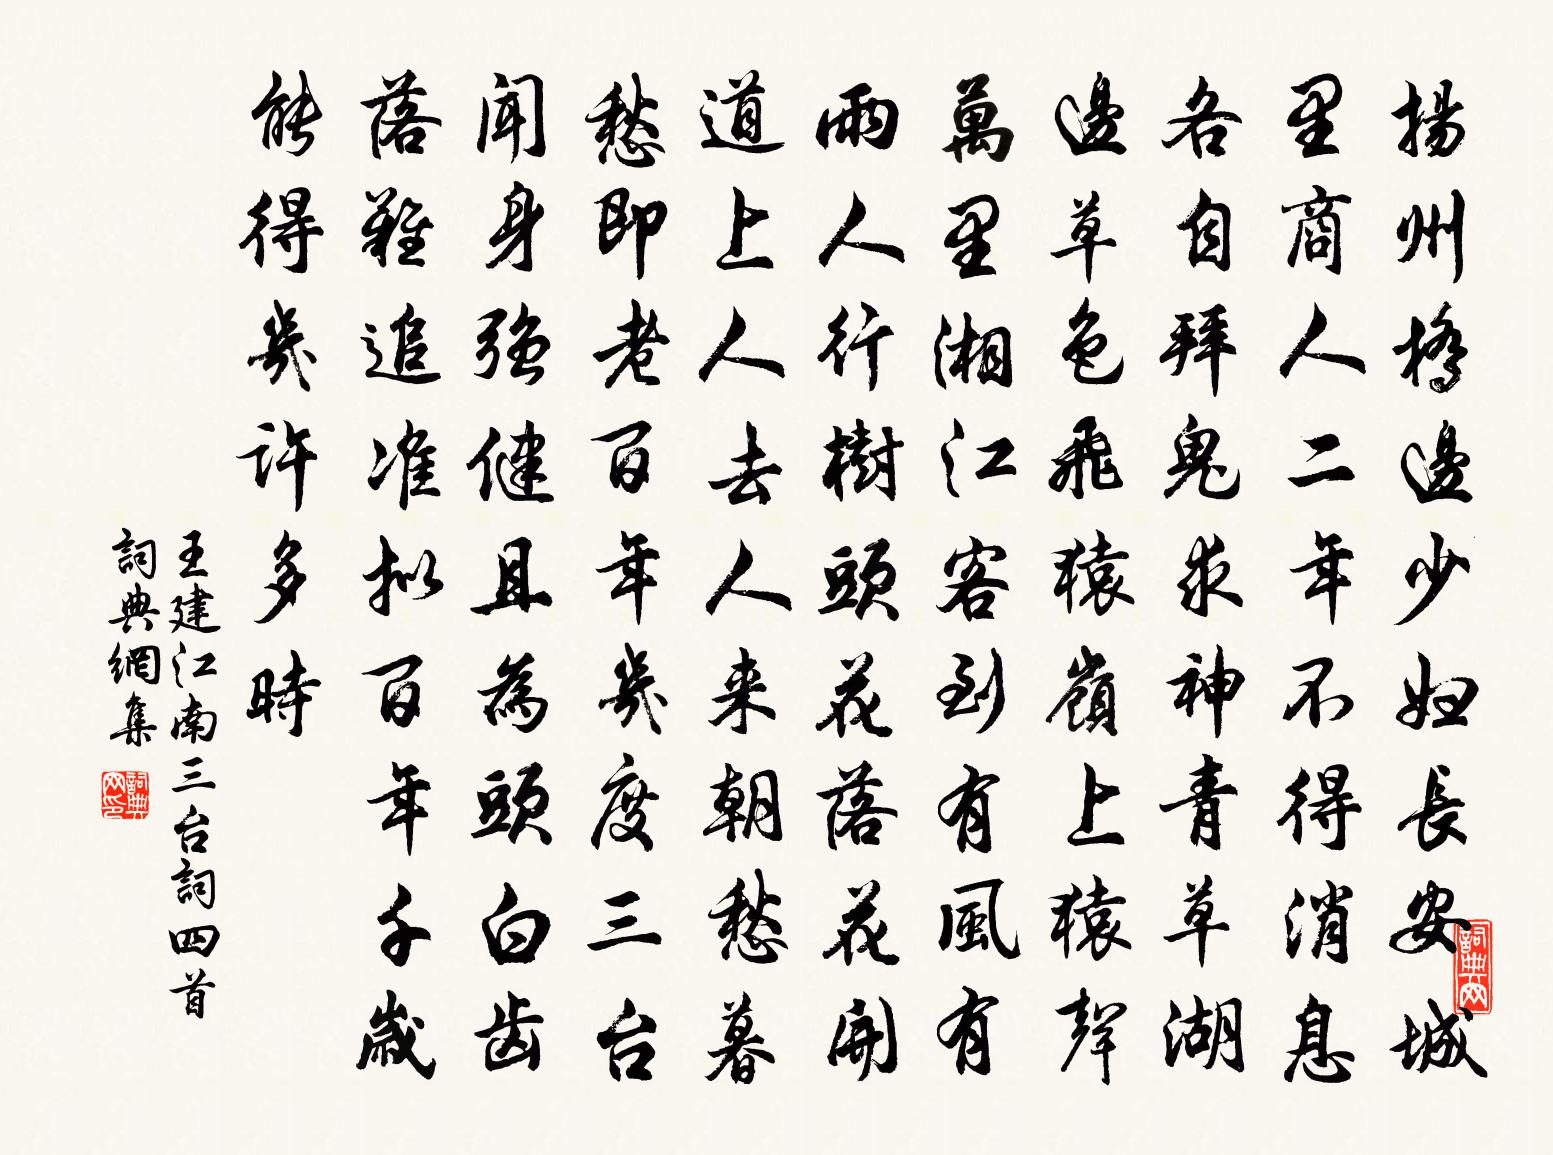 揚州橋邊少婦長安城
里商人二年不得消息
各自拜鬼求神青草湖
邊草色飛猿嶺上猿聲
萬里湘江客到有風有
雨人行樹頭花落花開
道上人去人来朝愁暮
愁即老百年幾度三台
聞身強健且為頭白齿
落難追准拟百年千歲
能得幾許多時
王建江南三台詞四首
詞典網集
詞典网印
詞典网